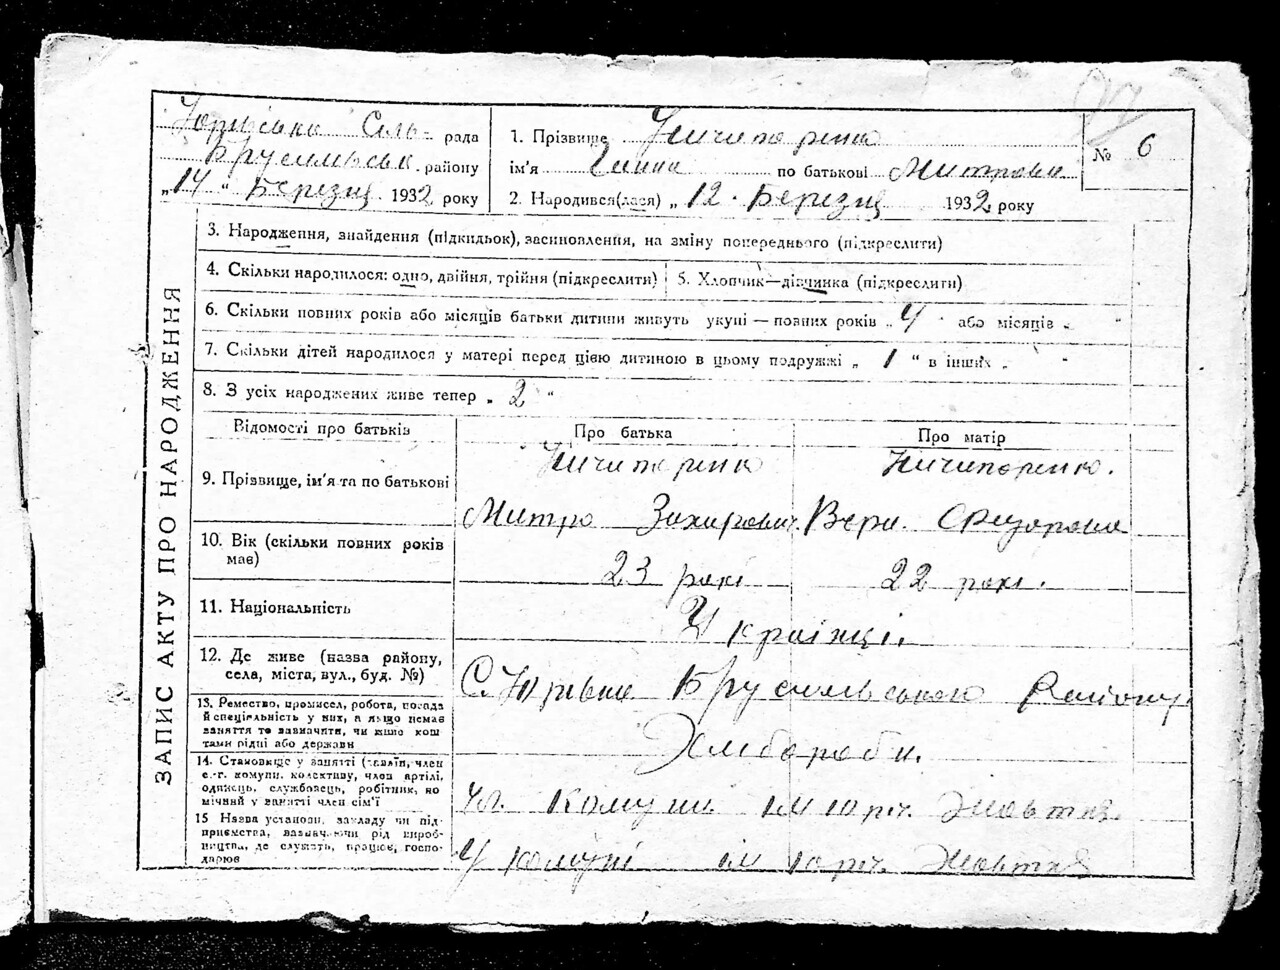 ЗАПИС АКТУ ПРО НАРОДЖЕННЯ
Юрівська Сіль- рада
Брусилівськ. району
„14“ Березня 1932 року
1. Прізвище Ничипоренко
ім'я по батькові Митровна
2. Народився(лася) „12. Березня 1932 року
№ 6
3. Народження, знайдення (підкидьок), засиновлення, на зміну попереднього (підкреслити)
4. Скільки народилося: одно, двійня, трійня (підкреслити) 5. Хлопчик—дівчинка (підкреслити)
6. Скільки повних років або місяців батьки дитини живуть укупі — повних років „4“ або місяців „ “
7. Скільки дітей народилося у матері перед цією дитиною в цьому подружжі „ 1 “ в інших „
8. З усіх народжених живе тепер „ 2 “
Відомості про батьків Про батька Про матір
9. Прізвище, ім'я та по батькові
Ничипоренко Ничипоренко.
Митро Захарович. Вера Федоровна
10. Вік (скільки повних років має)
23 рокі 22 рокі.
11. Національність
Українці.
12. Де живе (назва району,
села, міста, вул., буд. №)
С. Юрівка Брусилівського Району
13. Ремество, промисел, робота, посада
й спеціяльність у них, а якщо немає
заняття то зазначити, чи живе кош
тами рідні або держави
Хлібороби.
14. Становище у занятті (хазяїн, член
с.-г. комуни, колективу, член артілі,
одинець, службовець, робітник, по
мічний у занятті член сім'ї
чл. комуни ім 10 річ. Жовтня.
15 Назва установи, закладу чи під-
приємства, вазначаючи рід вироб-
ництва, де служать, працює, госпо-
дарює
У комуні ім 10 річ. Жовтня